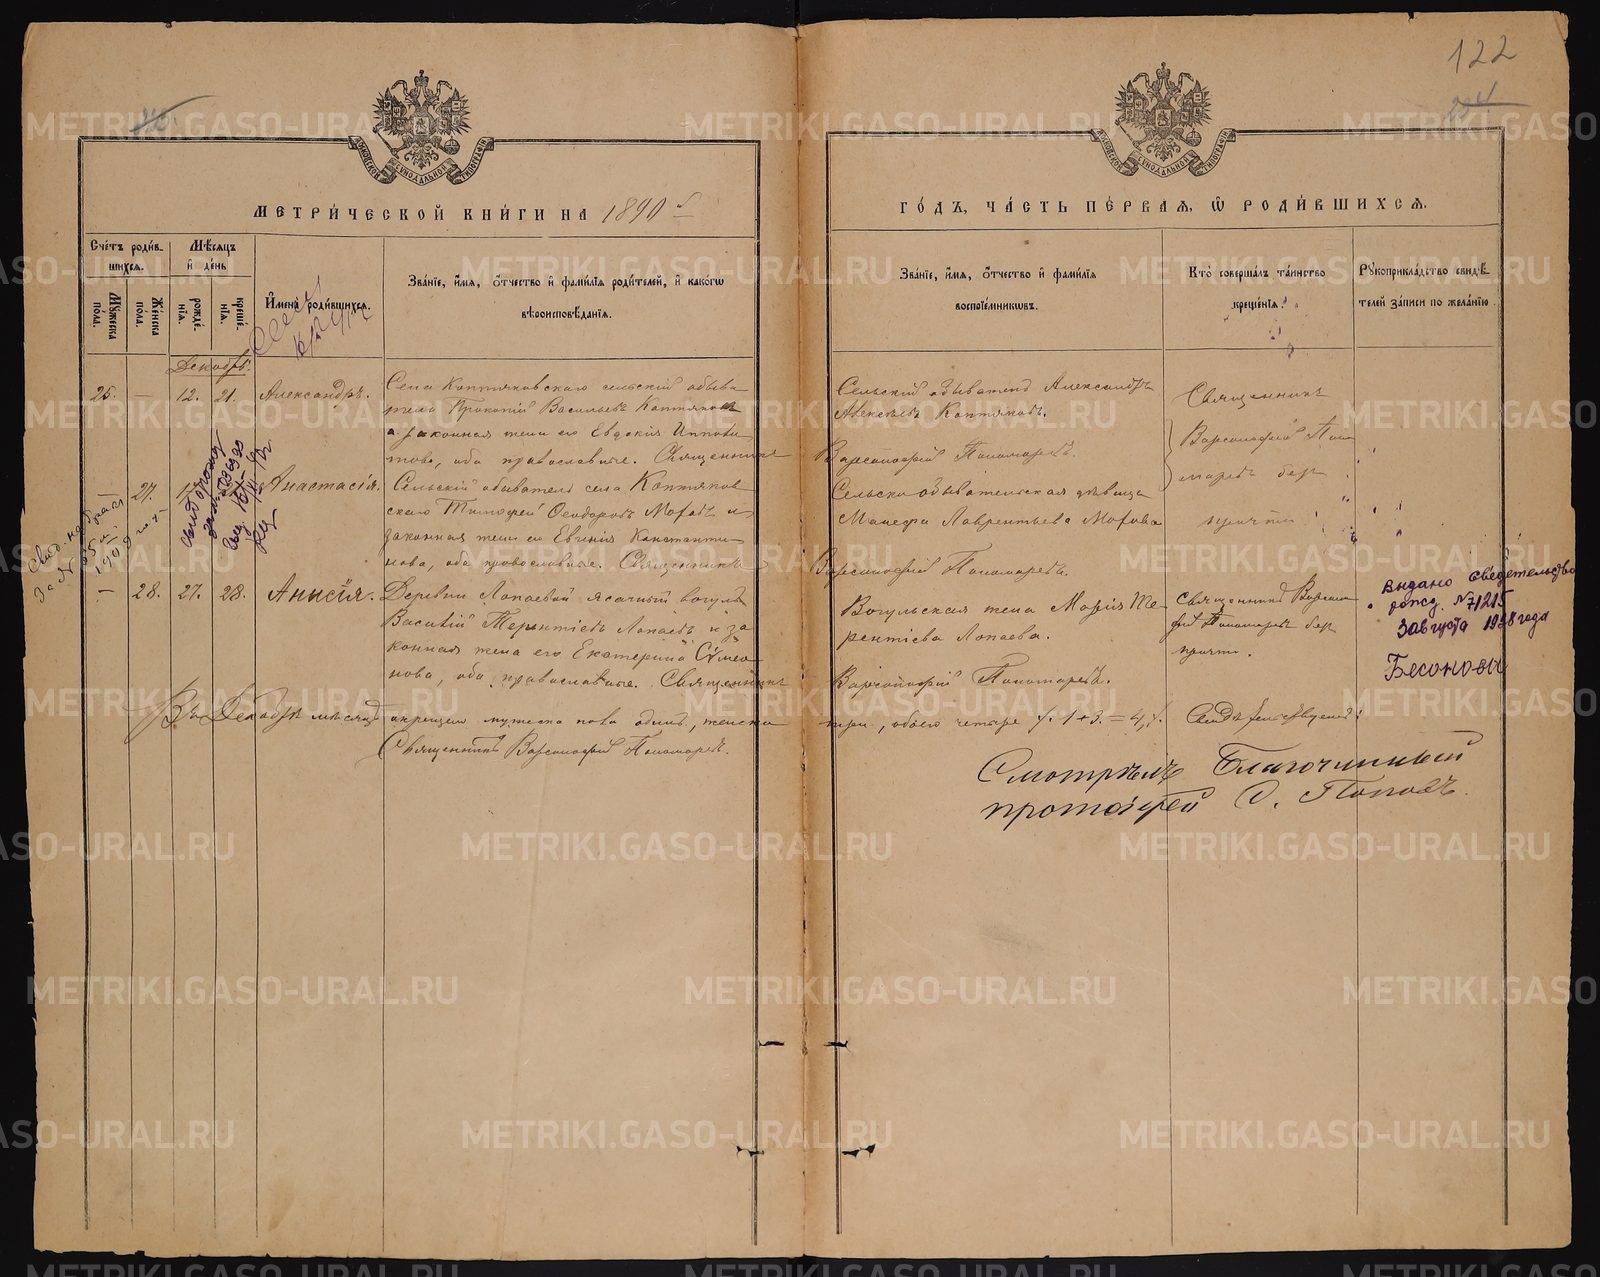 122
МЕТРИ́ЧЕСКОЙ КНИ́ГИ НА 1890 й
ГО́ДЪ, ЧА́СТЬ ПЕ́РВАЯ, Ѡ РОДИ́ВШИХСѦ.
Сче́тъ роди́в-
шихсѧ.
Мꙋ́жеска по́ла.
Же́нска по́ла.
Мѣ́сѧцъ
и҆ де́нь
рожде́нїѧ.
креще́нїѧ.
И҆мена̀ роди́вшихсѧ.
Зва́нїе, и҆́мѧ, ѻ҆́тчество и҆ фами́лїѧ роди́телей, и҆ како́гѡ
вѣроисповѣ́данїѧ.
Зва́нїе, и҆́мѧ, ѻ҆́тчество и҆ фами́лїѧ
воспрїе́мниковъ.
Кто̀ соверша́лъ та́инство
креще́нїѧ.
Рꙋкоприкла́дство свидѣ́-
телей за́писи по жела́нїю.
Декабрь.
25. — 12. 21. Александръ.
Села Коптяковскаго сельский обыва
тель Прокопій Васильевъ Коптяковъ
а законная жена его Евдокія Ипполи
това, оба православные. Священникъ
Сельский обыватель Александръ
Алексѣевъ Коптяковъ.
Варсонофій Пономаревъ.
Священникъ
Варсонофій Поно
маревъ безъ
причта
27. Анастасія.
Сельскій обыватель села Коптяков
скаго Тимофей Феодоровъ и
законная жена его Евгенія Константи
нова, оба православные. Священникъ
Сельско обывательская дѣвица
Лаврентьева
Варсонофій Пономаревъ.
— 28. 27. 28. Анисія.
Деревни Лопаевой ясачный вогулъ
Василій Терентіевъ Лопаевъ и за
конная жена его Екатерина Сѵмео
нова, оба православные. Священникъ
Вогульская жена Марія Те
рентіева Лопаева.
Варсонофій Пономаревъ.
Священникъ Варсоно
фій Пономаревъ безъ
причта.
Выдано свидетельство
рожд. № 71215
3 августа 1938 года
Въ Декабрѣ мѣсяцѣ окрещено мужеска пола одинъ, женска
три, обоего четыре /. 1 + 3. = 4 /.
Священникъ Варсонофій Пономаревъ.
Смотрѣлъ Благочинный
протоіерей С. Поповъ.
METRIKI.GASO-URAL.RU